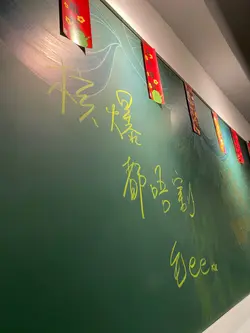 核爆
都唔割